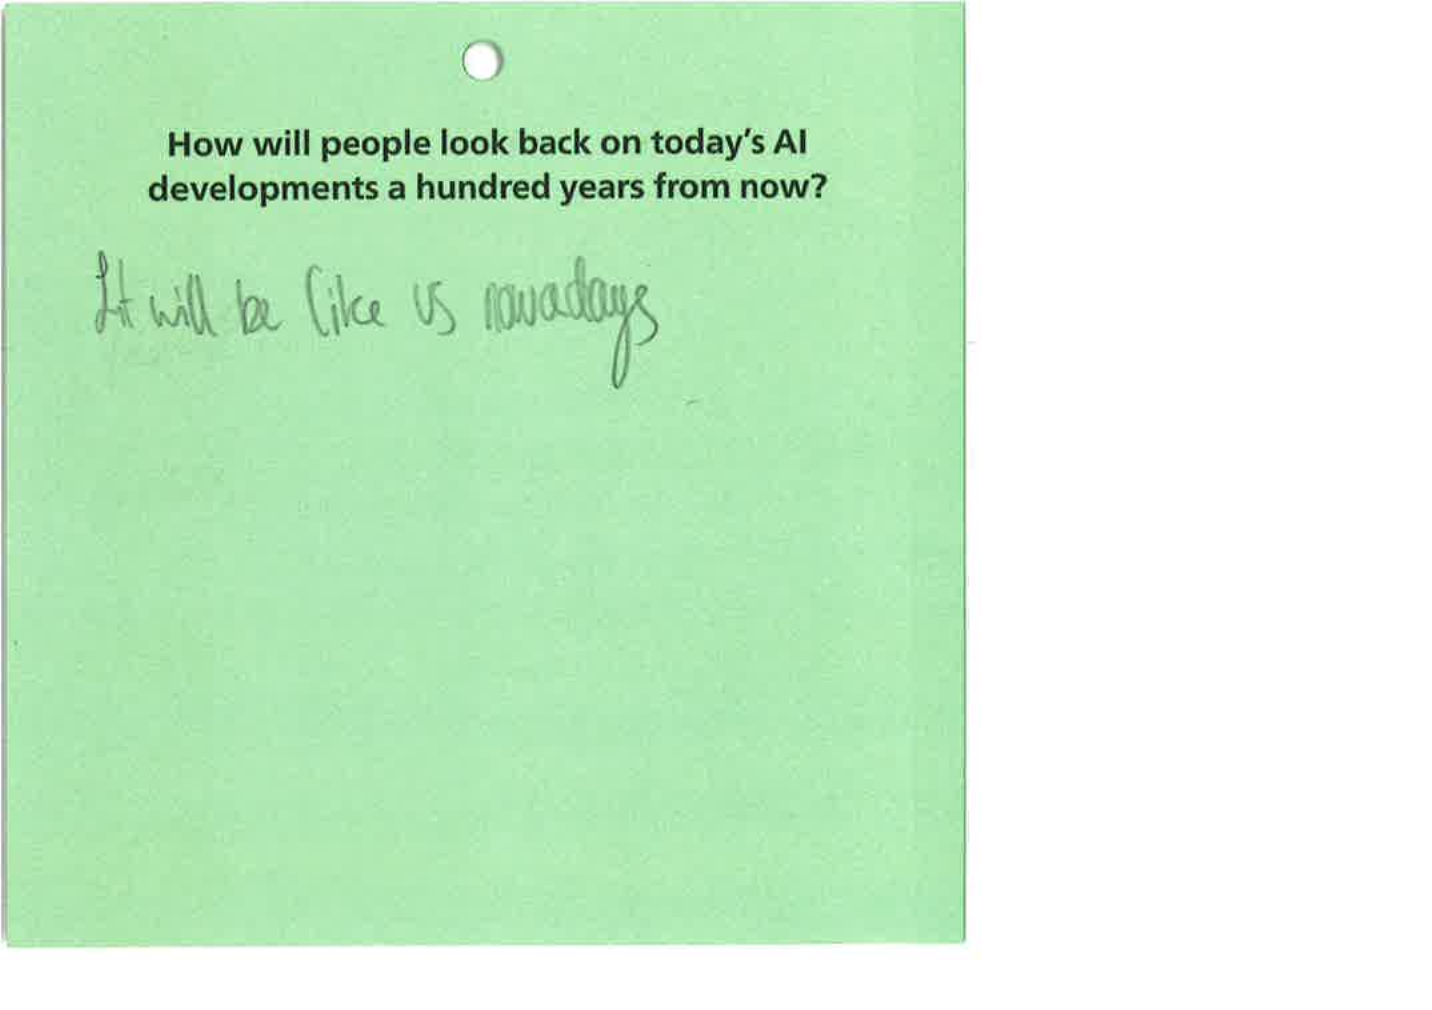 How will people look back on today's AI
developments a hundred years from now?
It will be like us nowadays